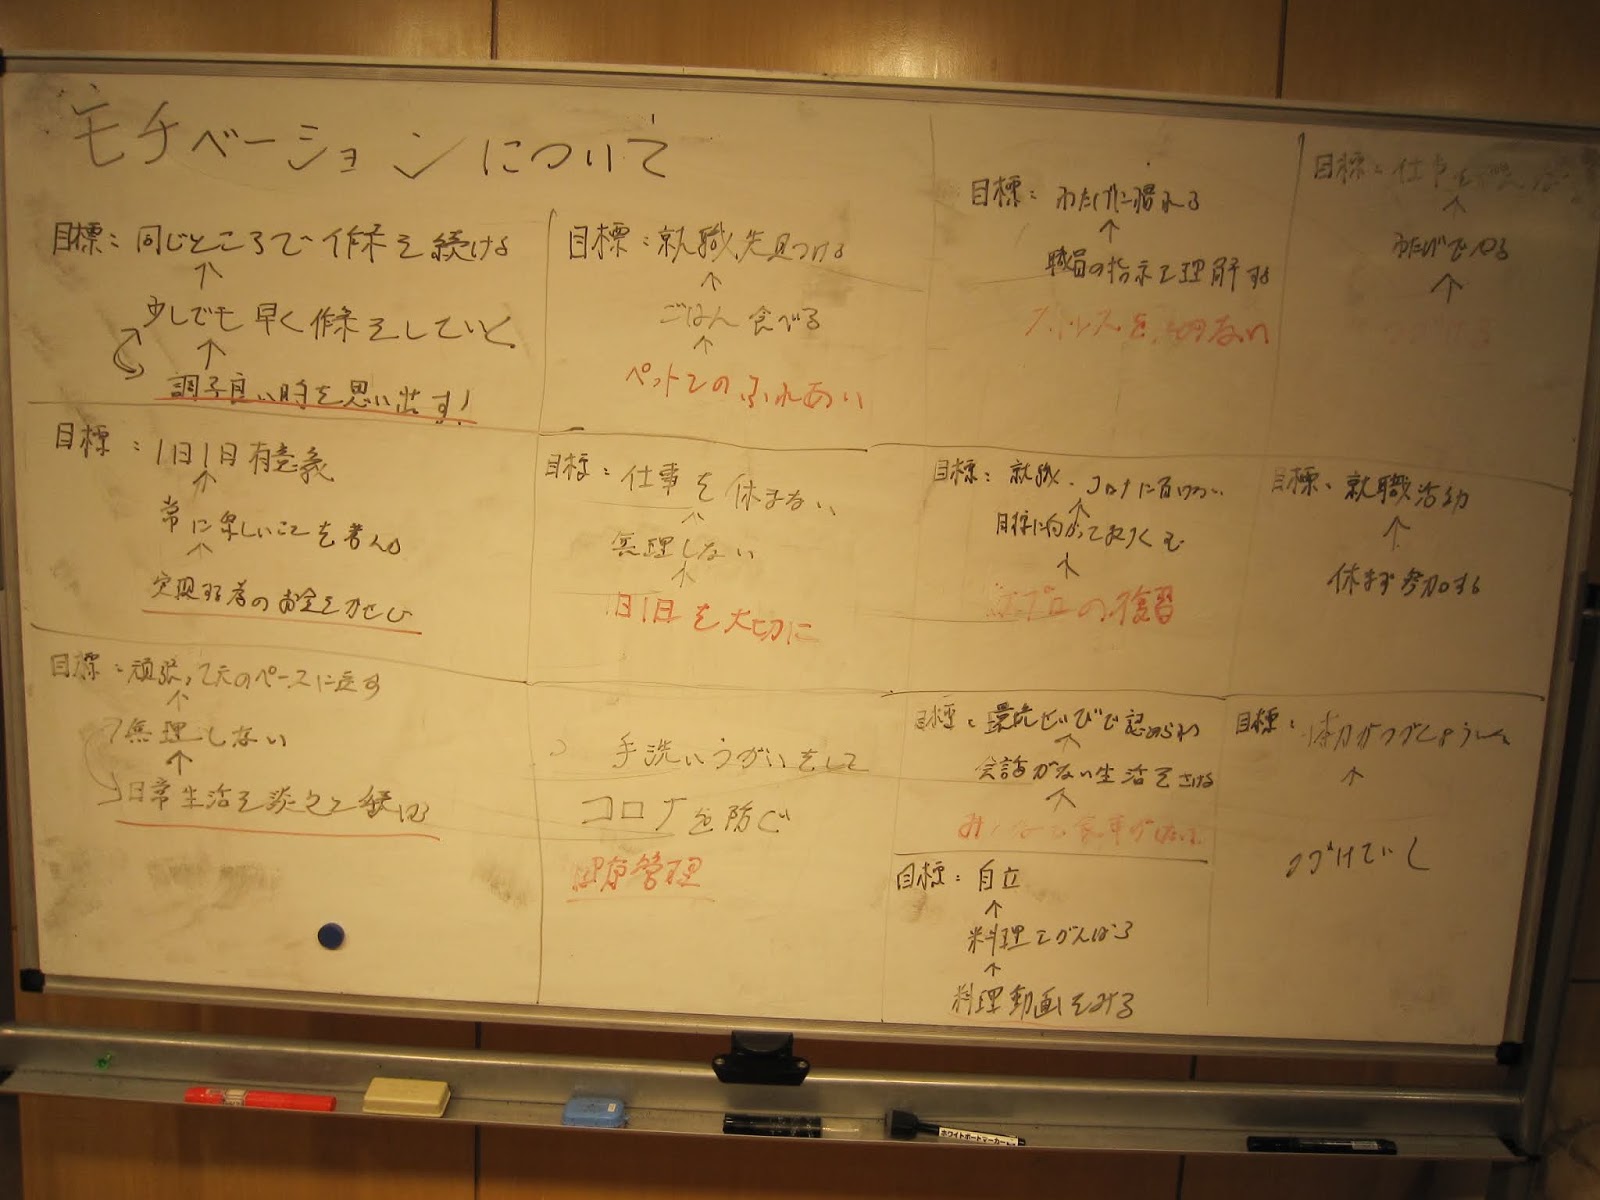 モチベーションについて
目標:同じところで作業を続ける
少しでも早く作業をしていく
調子良い時を思い出す!
目標:就職先見つける
ごはん食べる
ペットとのふれあい
目標:わたげに慣れる
職員の指示を理解する
目標:仕事
わたげで
目標:1日1日有意義
常に楽しいことを考える
のお金をかせぐ
目標:仕事を休まない
無理しない
1日1日を大切に
目標:就職、コロナに負けない
目標に向かって
の復習
目標:就職活動
休まず参加する
目標:頑張って元のペースに戻す
無理しない
日常生活を淡々と続ける
手洗いうがいをして
コロナを防ぐ
健康管理
目標:環境せいびで認められ
会話がない生活をさける
みんなで食事
目標:自立
料理をがんばる
料理動画をみる
目標:体力がつくように
つづけていく
ホワイトボードマーカー